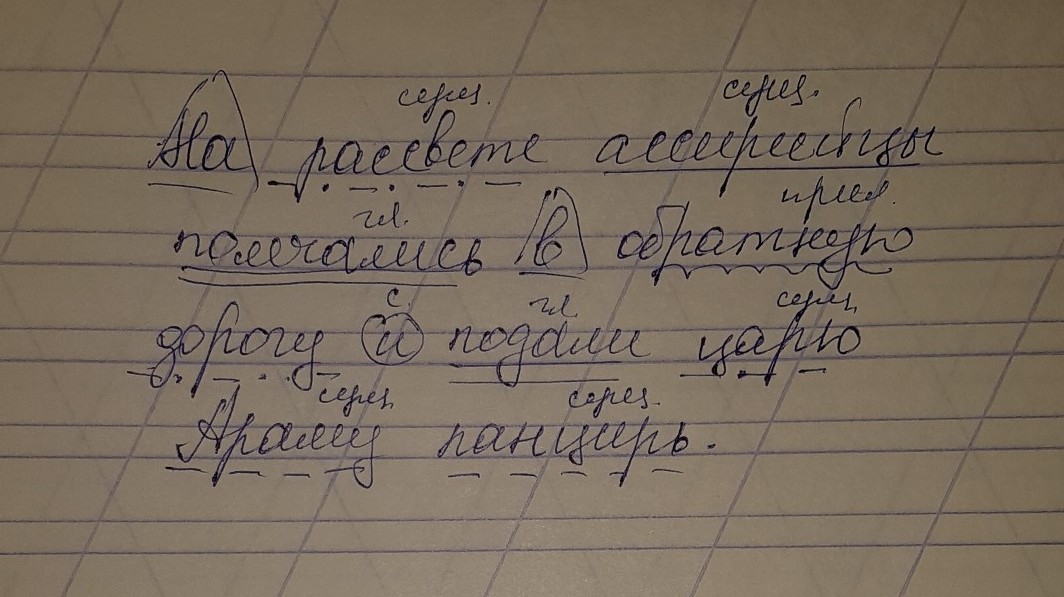 сущ. сущ.
На рассвете ассирийцы
гл. прил.
помчались в обратную
с. гл. сущ.
дорогу и подали царю
сущ. сущ.
Араму панцирь.